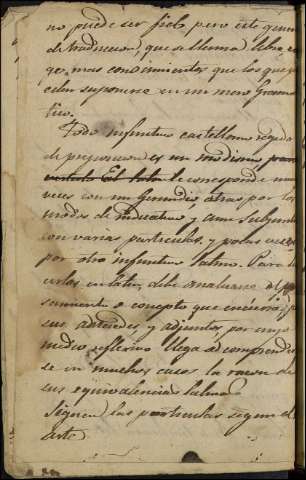 no puede ser fiel, pero este genero
de traduccion, que se llama libre, exi
ge mas conocimientos que los que
suponerse en un mero Grama
tico.
Todo infinitivo castellano regido
de preposicion es un modismo
El latin le corresponde unas
veces con un Gerundio, otras por los
modos de indicativo y aun subjuntivo
con varias particulas, y pocas veces
por otro infinitivo latino. Para
en latin, debe analizarse el pen
samiento o concepto que encierra
sus adjuntos, por cuyo
medio reflexivo llega a comprender
se en muchos casos la razon de
sus equivalencias latinas.
Siguen las particulas segun el
arte.